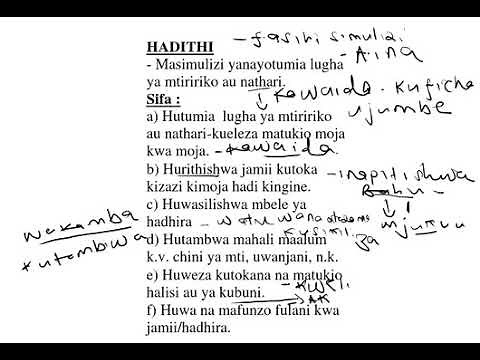 HADITHI - fasihi simulizi
- Aina
- Masimulizi yanayotumia lugha
ya mtiririko au nathari.
Kawaida. kuficha
ujumbe
Sifa :
a) Hutumia lugha ya mtiririko
au nathari-kueleza matukio moja
kwa moja. - kawaida.
b) Hurithishwa jamii kutoka - inapitishwa
kizazi kimoja hadi kingine. Babu -
c) Huwasilishwa mbele ya mjukuu
hadhira - watu wana
za
wakamba
kutambwa
d) Hutambwa mahali maalum
k.v. chini ya mti, uwanjani, n.k.
e) Huweza kutokana na matukio
halisi au ya kubuni. - kweli
f) Huwa na mafunzo fulani kwa
jamii/hadhira.